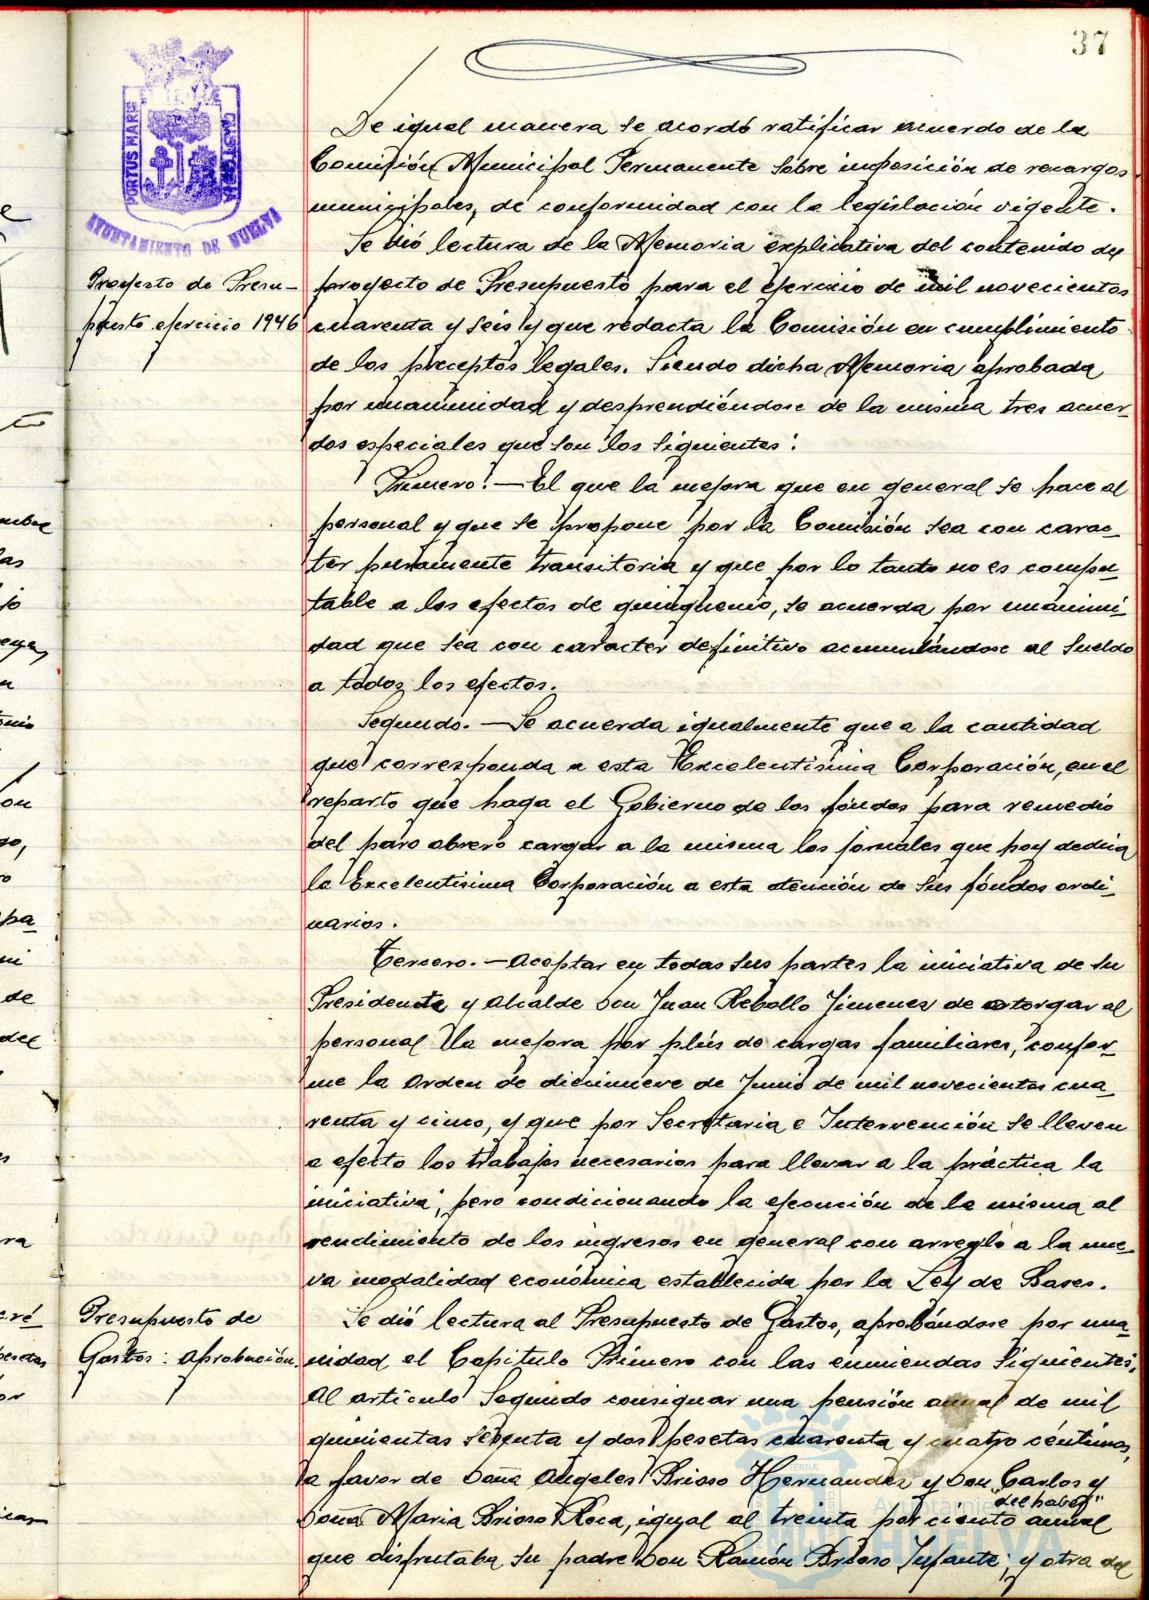 37
PORTUS MARIS
CUSTODIA
AYUNTAMIENTO DE HUELVA
De igual manera se acordó ratificar acuerdo de la
Comisión Municipal Permanente sobre imposición de recargos
municipales, de conformidad con la legislación vigente.
Se dió lectura de la Memoria explicativa del contenido del
Proyecto de Presu-
puesto ejercicio 1946
proyecto de Presupuesto para el ejercicio de mil novecientos
cuarenta y seis y que redacta la Comisión en cumplimiento
de los preceptos legales. Siendo dicha Memoria aprobada
por unanimidad y desprendiéndose de la misma tres acuer-
dos especiales que son los siguientes:
Primero.- El que la mejora que en general se hace al
personal y que se propone por la Comisión sea con carac-
ter puramente transitoria y que por lo tanto no es compu-
table a los efectos de quinquenio, se acuerda por unanimi-
dad que sea con caracter definitivo acumulándose al sueldo
a todos los efectos.
Segundo.- Se acuerda igualmente que a la cantidad
que corresponda a esta Excelentisima Corporación, en el
reparto que haga el Gobierno de los fondos para remedio
del paro obrero cargar a la misma los jornales que hoy dedica
la Excelentisima Corporación a esta atención de sus fondos ordi-
narios.
Tercero.- Aceptar en todas sus partes la iniciativa de su
Presidente y Alcalde Don Juan Rebollo Jimenez de otorgar al
personal la mejora por plús de cargas familiares, confor-
me la Orden de diecinueve de Junio de mil novecientos cua-
renta y cinco, y que por Secretaria e Intervención se lleven
a efecto los trabajos necesarios para llevar a la práctica la
iniciativa, pero condicionando la ejecución de la misma al
rendimiento de los ingresos en general con arreglo a la nue-
va modalidad económica establecida por la Ley de Bases.
Presupuesto de
Gastos: aprobación
Se dió lectura al Presupuesto de Gastos, aprobándose por una-
nidad el Capitulo Primero con las enmiendas siguientes:
Al articulo Segundo consignar una pensión anual de mil
quinientas setenta y dos pesetas cuarenta y cuatro céntimos,
a favor de Doña Angeles Brioso Hernandez y Don Carlos y
"del haber"
Doña Maria Brioso Roca, igual al treinta por ciento anual
que disfrutaba su padre Don Ramón Brioso Infante; y otra del
Ayuntamiento
HUELVA